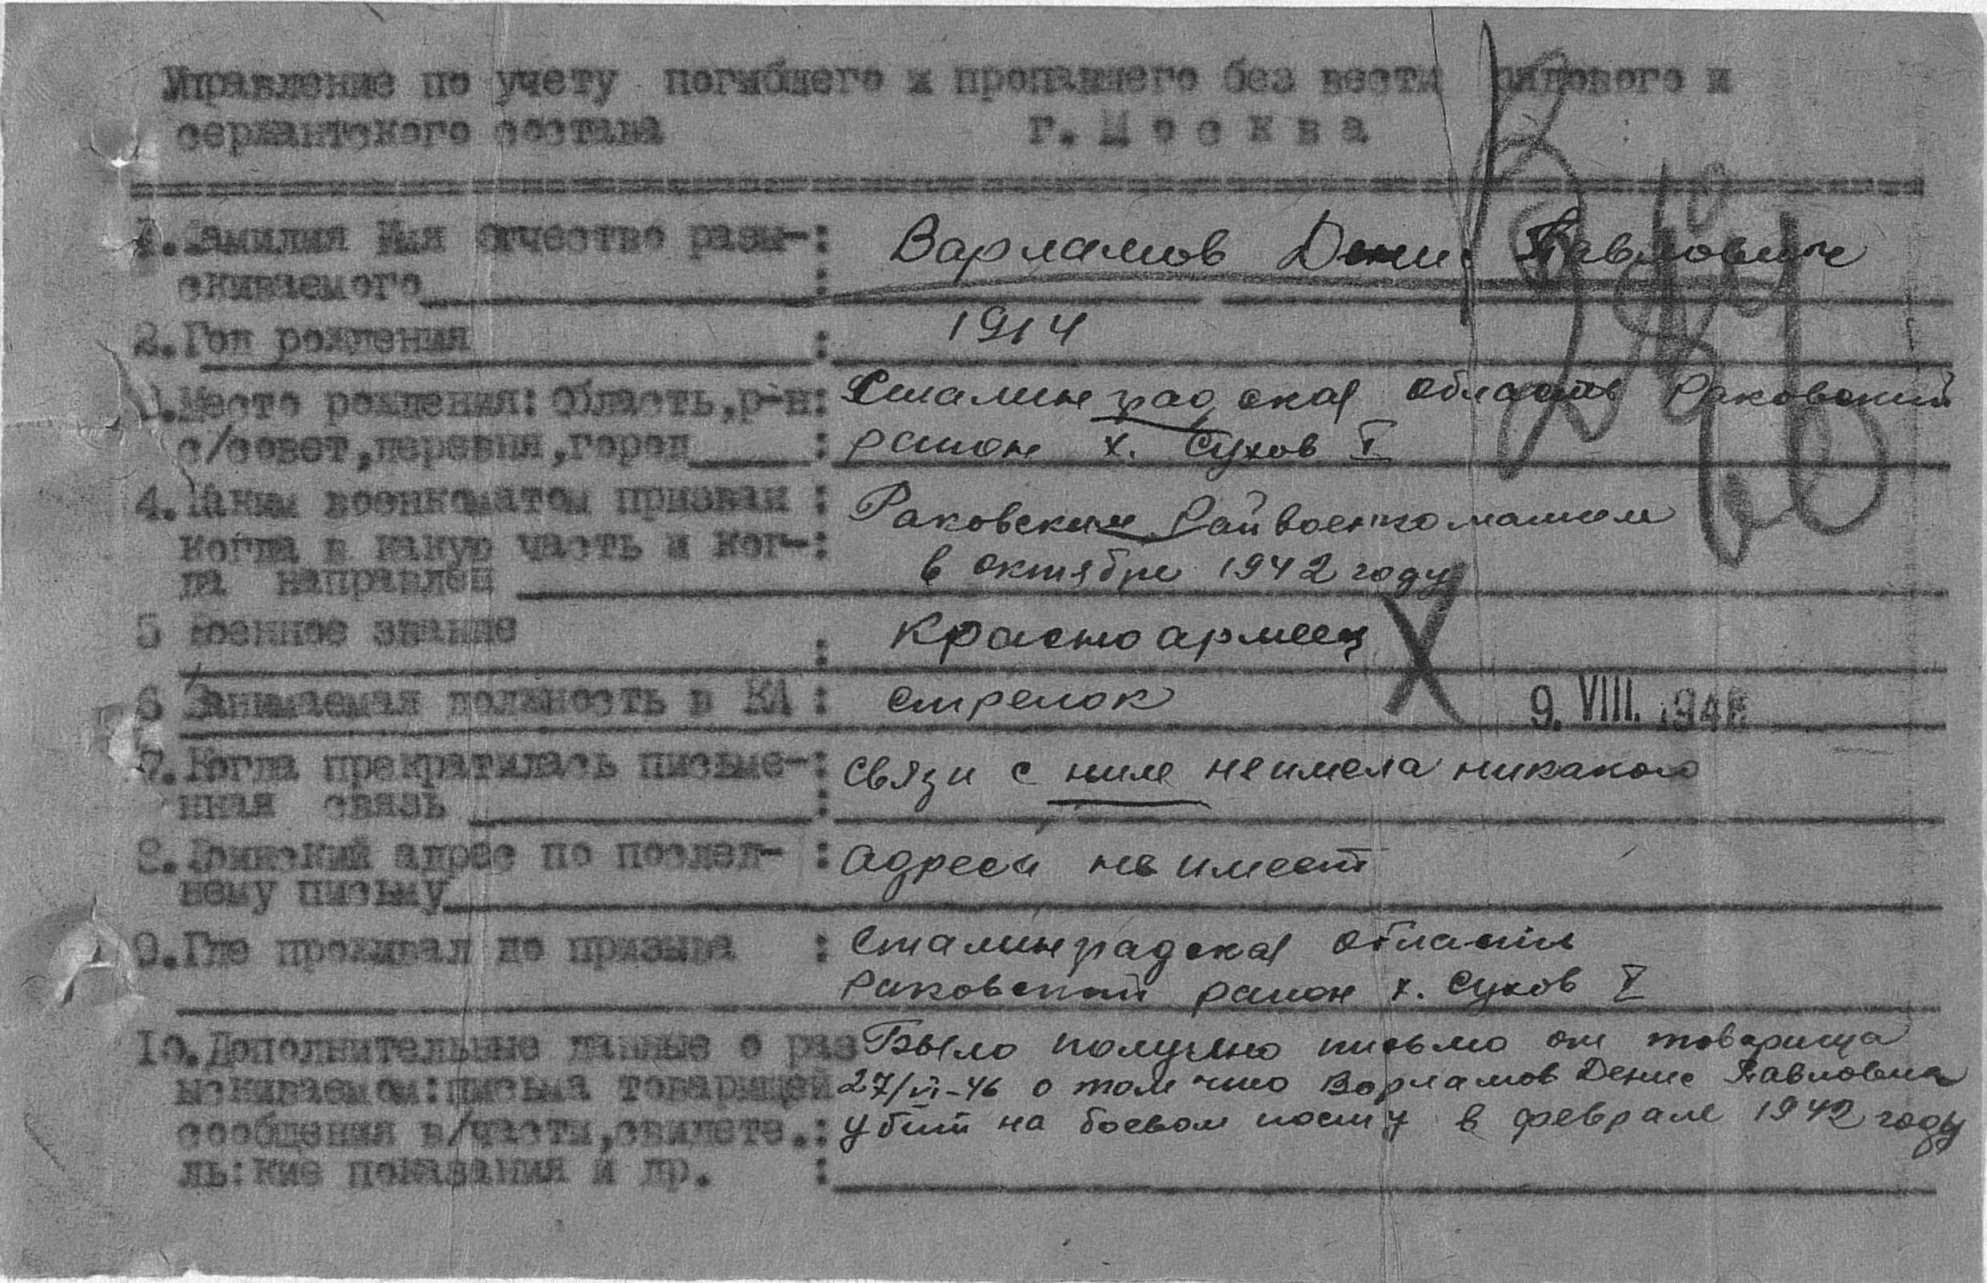 Управление по учету погибшего и пропавшего без вести рядового и
сержантского состава г. Москва
1. Фамилия Имя отчество разы-: Варламов Денис Павлович
скиваемого :
2. Год рождения : 1914
3. Место рождения: Область, р-н: Сталинградская область Раковский
с/совет, деревня, город : район х. Сухов I
4. Каким военкоматом призван : Раковским Райвоенкоматом
когда в какую часть и ког-: в октябре 1942 году
да направлен
5 Военное звание : Красноармеец
6 Занимаемая должность в КА : стрелок
9. VIII. 1946
7. Когда прекратилась письме-: связи с ним не имела никакой
нная связь :
8. Воинский адрес по послед- : адреса не имеет
нему письму
9. Где проживал до призыва : Сталинградская область
Раковский район х. Сухов I
10. Дополнительные данные о раз Было получено письмо от товарища
ыскиваемом: письма товарищей 27/VI-46 о том что Варламов Денис Павлович
сообщения в/части, свидете.: убит на боевом посту в феврале 1942 году
ль:кие показания и др. :